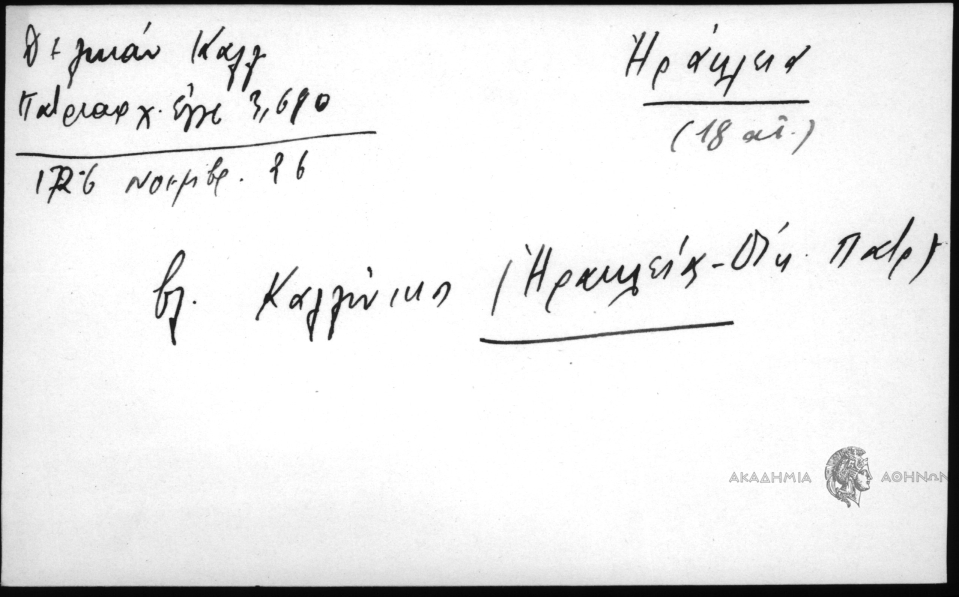 Δελικάν Καλλ
Πατριαρχ. έγγρ 3,690
1726 Νοεμβρ. 26
Ἡράκλεια
(18 αἰ.)
βλ. Καλλίνικος (Ἡρακλείας - Οἰκ. Πατρ)
ΑΚΑΔΗΜΙΑ ΑΘΗΝΩΝ